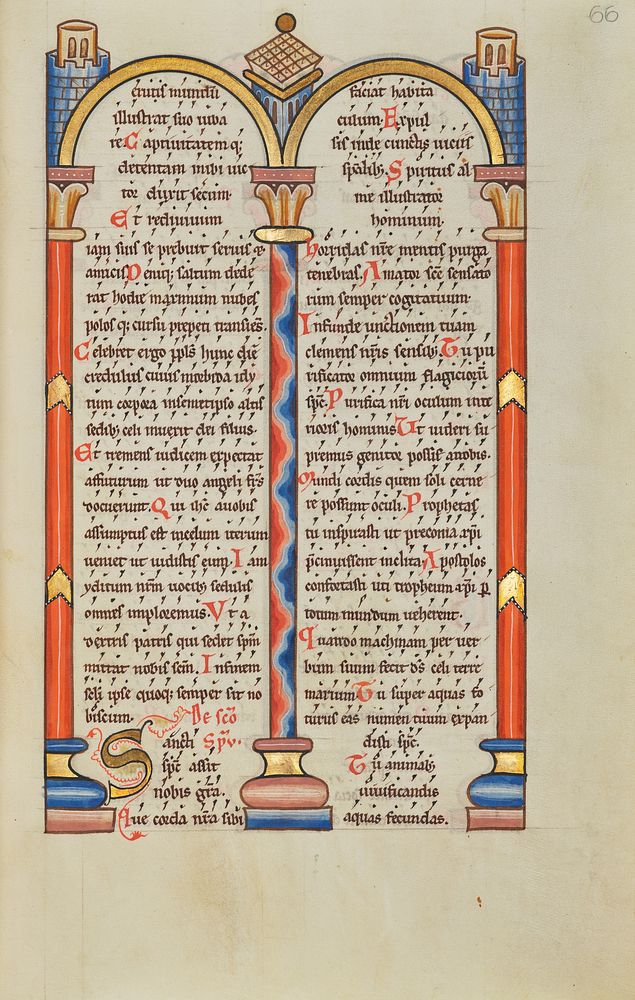 66
crutis mundū
illustrat suo iuba
re Captiuitatem q;
detentam inibi uic
tor duxit secum.
Et rediuiuum
iam suis se prebuit seruis &
amicis Deniq; saltum dede
rat hodie maximum nubes
polos q; cursu prepeti transiēs.
Celebret ergo ppłs hunc diē
credulus cuius morbida idy
tum corpora in semetipso altis
sedibꝫ celi inuexit dei filius.
Et tremens iudicem expectat
affuturum ut duo angeli frēs
docuerunt. Qui ihc auobis
assumptus est in celum iterum
ueniet ut uidistis eum. Iam
yditum nr̄m uocibꝫ sedulis
omnes imploremus. Vt a
dextris patris qui sedet spm̄
mittat nobis scm̄. In finem
sclī ipse quoq; semper sit no
biscum. De scō
Sancti Spū.
spc̄ assit
nobis gr̄a.
Que corda nr̄a sibi
faciat habita
culum. Expul
sis inde cunctis uiciis
spalibꝫ. Spiritus al
me illustrator
hominum.
Horridas nr̄e mentis purga
tenebras. Amator scē sensato
rum semper cogitatuum
Infunde unctionem tuam
clemens nr̄is sensibꝫ. Tu pu
rificator omnium flagiciorū
spc̄. Purifica nr̄i oculum inte
rioris hominis Ut uideri su
premus genitor possit anobis.
Mundi cordis quem soli cerne
re possunt oculi. Prophetas
tu inspirasti ut preconia xp̄i
p̄cinuissent inclita. Apostolos
confortasti uti tropheum xp̄i ꝑ
totum mundum ueherent.
Quando machinam per uer
bum suum fecit dꝰs celi terre
marium Tu super aquas fo
turus eas numen tuum expan
disti spc̄.
Tu animabꝫ
uiuificandis
aquas fecundas.